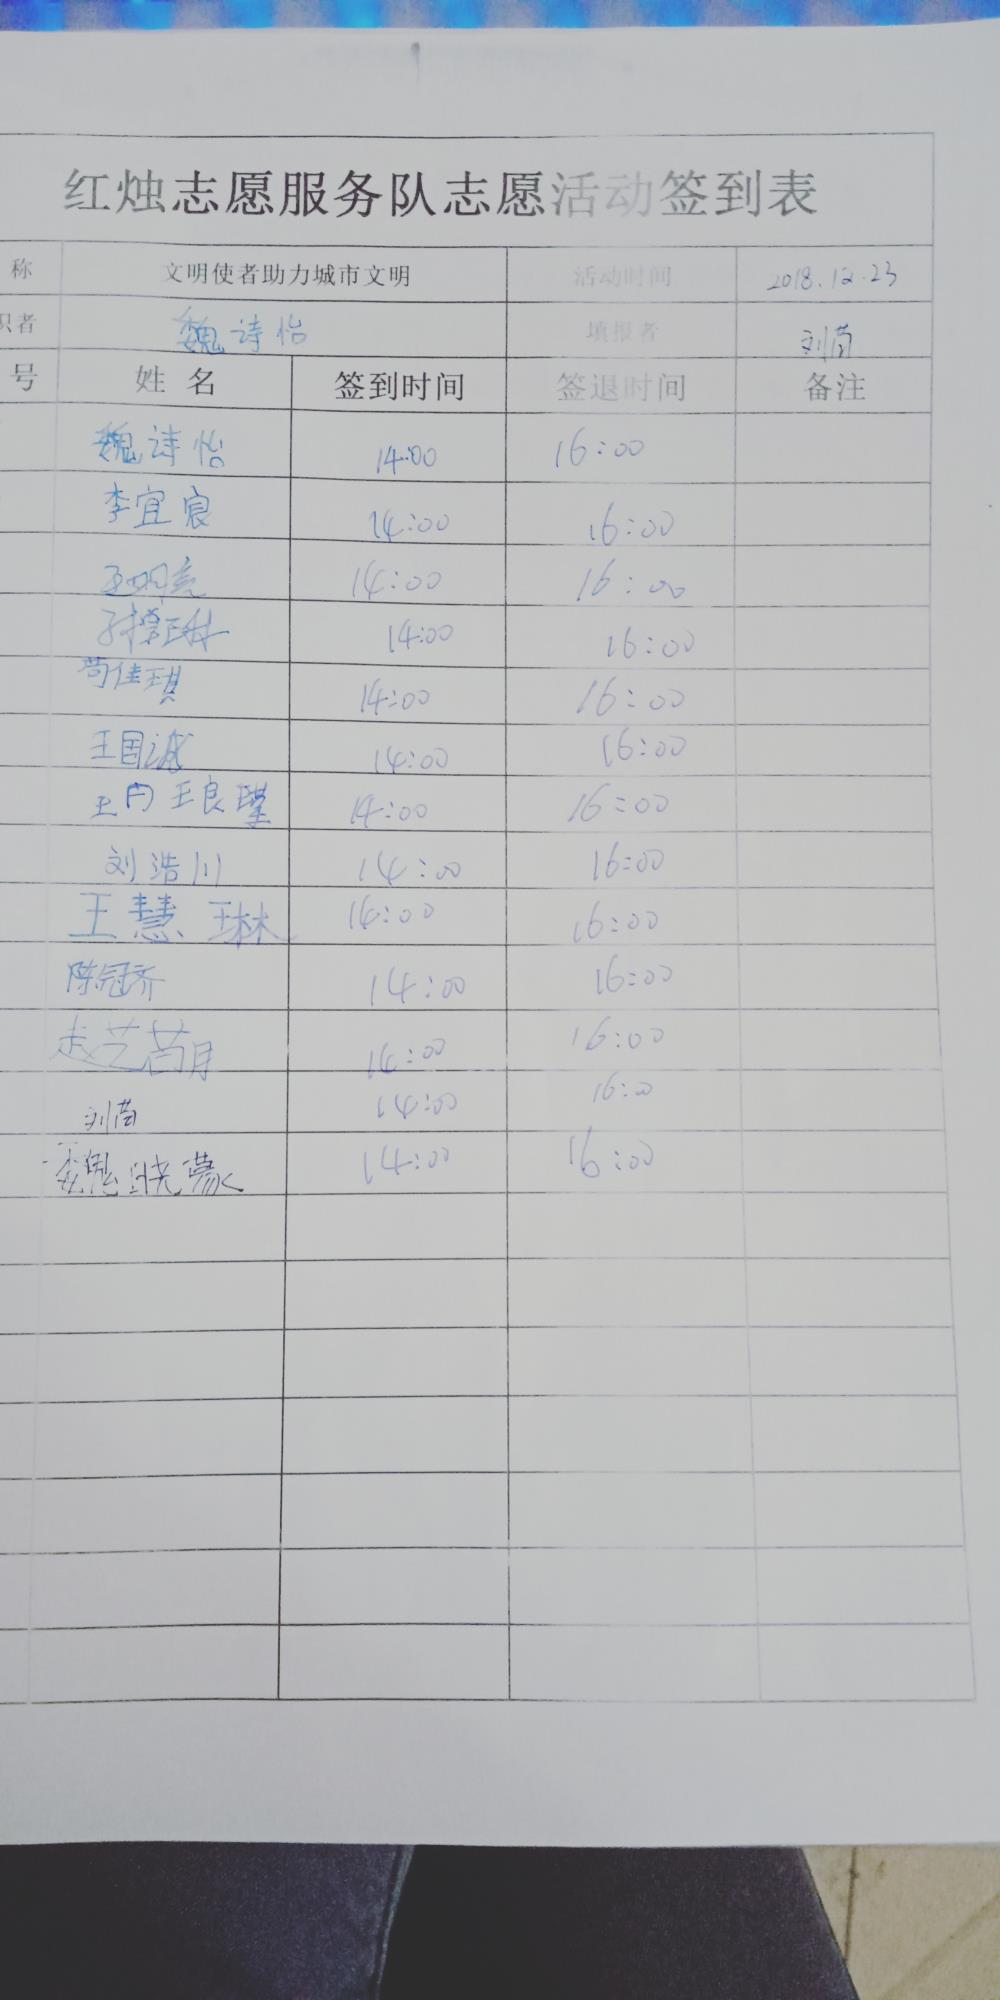 红烛志愿服务队志愿活动签到表
称 文明使者助力城市文明 活动时间 2018.12.23
织者 魏诗怡 填报者 刘茵
号 姓名 签到时间 签退时间 备注
魏诗怡 14:00 16:00
李宜宸 14:00 16:00
王明亮 14:00 16:00
14:00 16:00
苟佳琪 14:00 16:00
王国诚 14:00 16:00
14:00 16:00
刘浩川 14:00 16:00
王慧琳 14:00 16:00
陈冠齐 14:00 16:00
14:00 16:00
刘茵 14:00 16:00
魏晓蒙 14:00 16:00